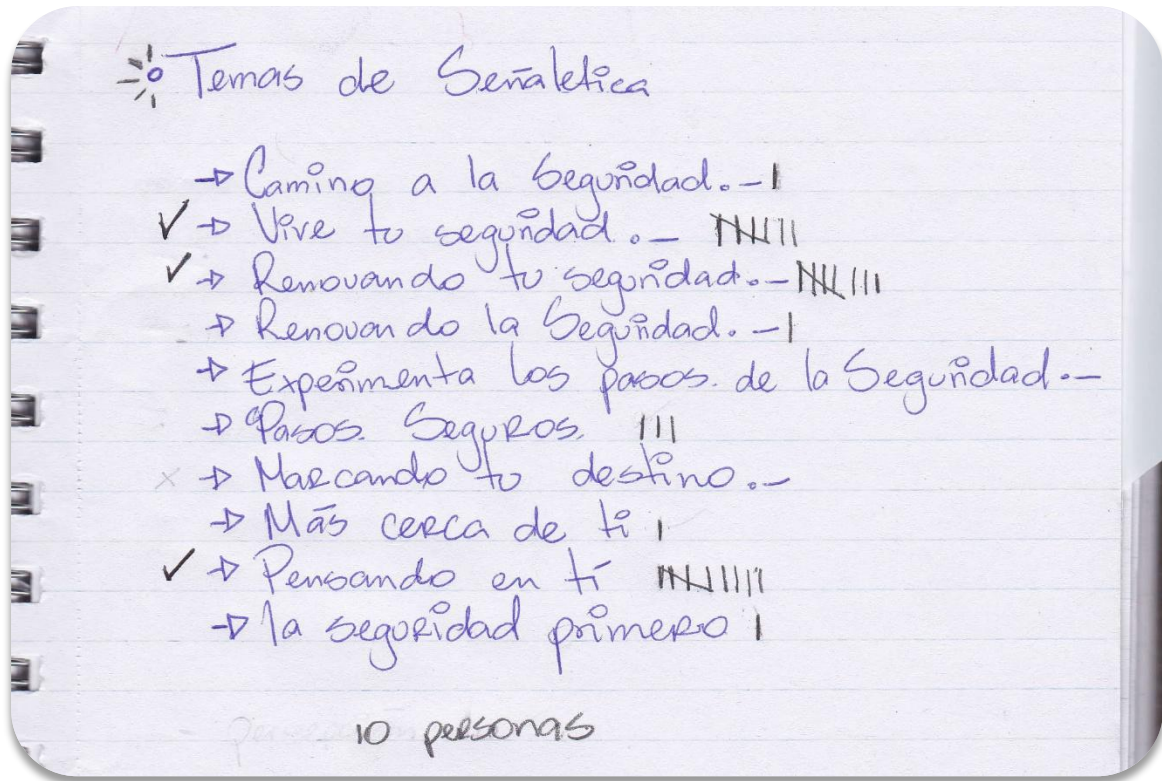 Temas de Señaletica
→ Camino a la Seguridad.- I
✓ → Vive tu seguridad.- IIIIIII
✓ → Renovando tu seguridad.- IIIIIIII
→ Renovando la Seguridad.- I
→ Experimenta los pasos de la Seguridad.-
→ Pasos Seguros. III
x → Marcando tu destino.-
→ Más cerca de ti I
✓ → Pensando en tí IIIIIIIII
→ la seguridad primero I
10 personas